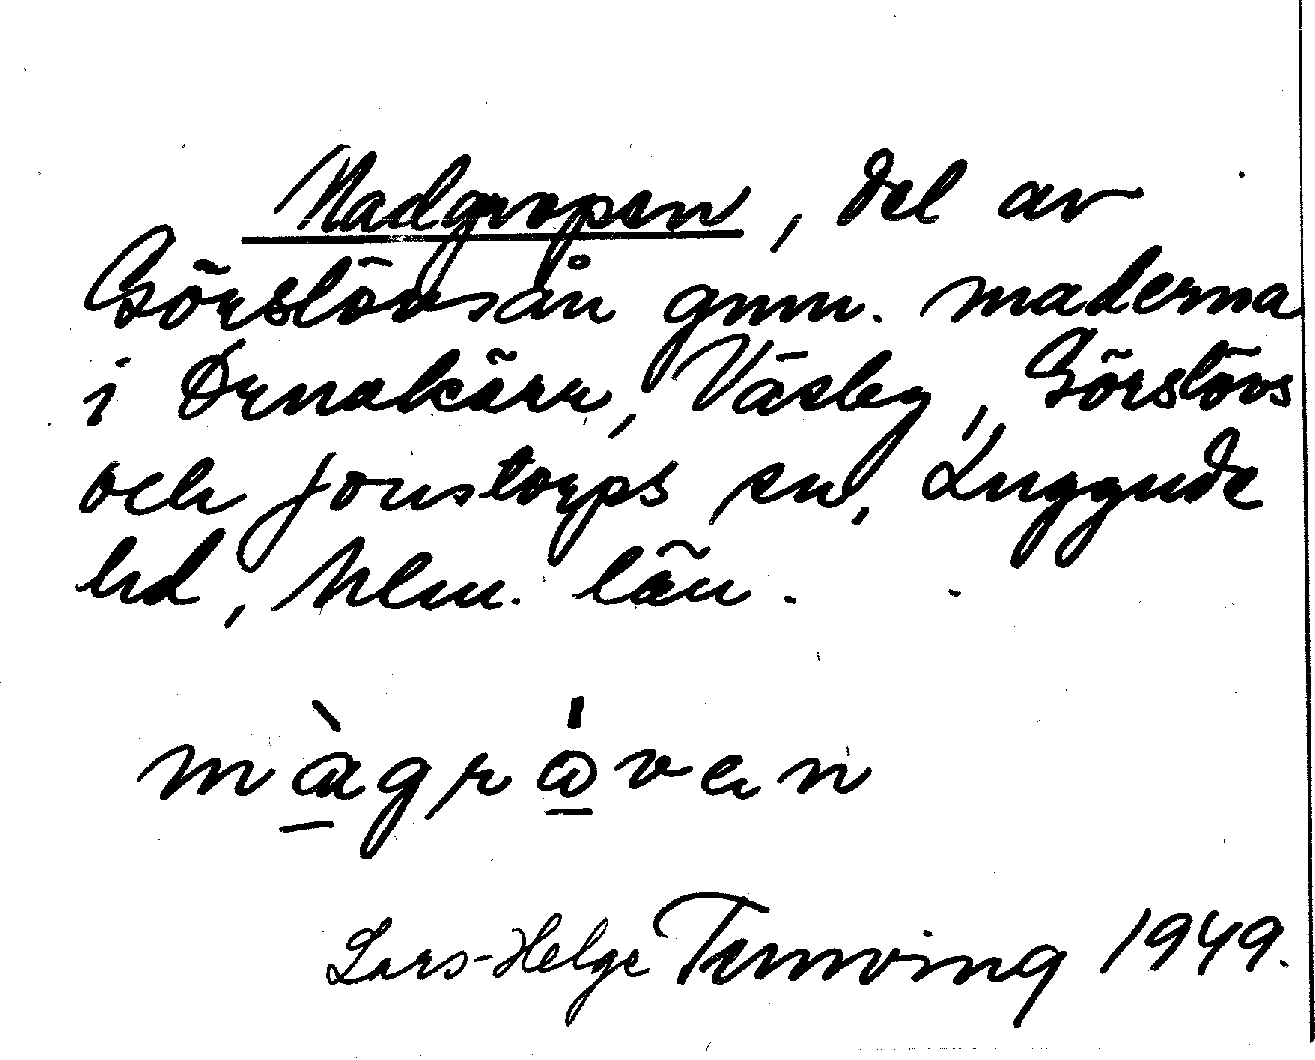 Madgropen, del av
Görslövsån gnm. maderna
i Drnakärr, Väsby, Görslövs
och Jonstorps sn, Luggude
hd, Mlm. län.
màgråven
Lars-Helge Tunving 1949.